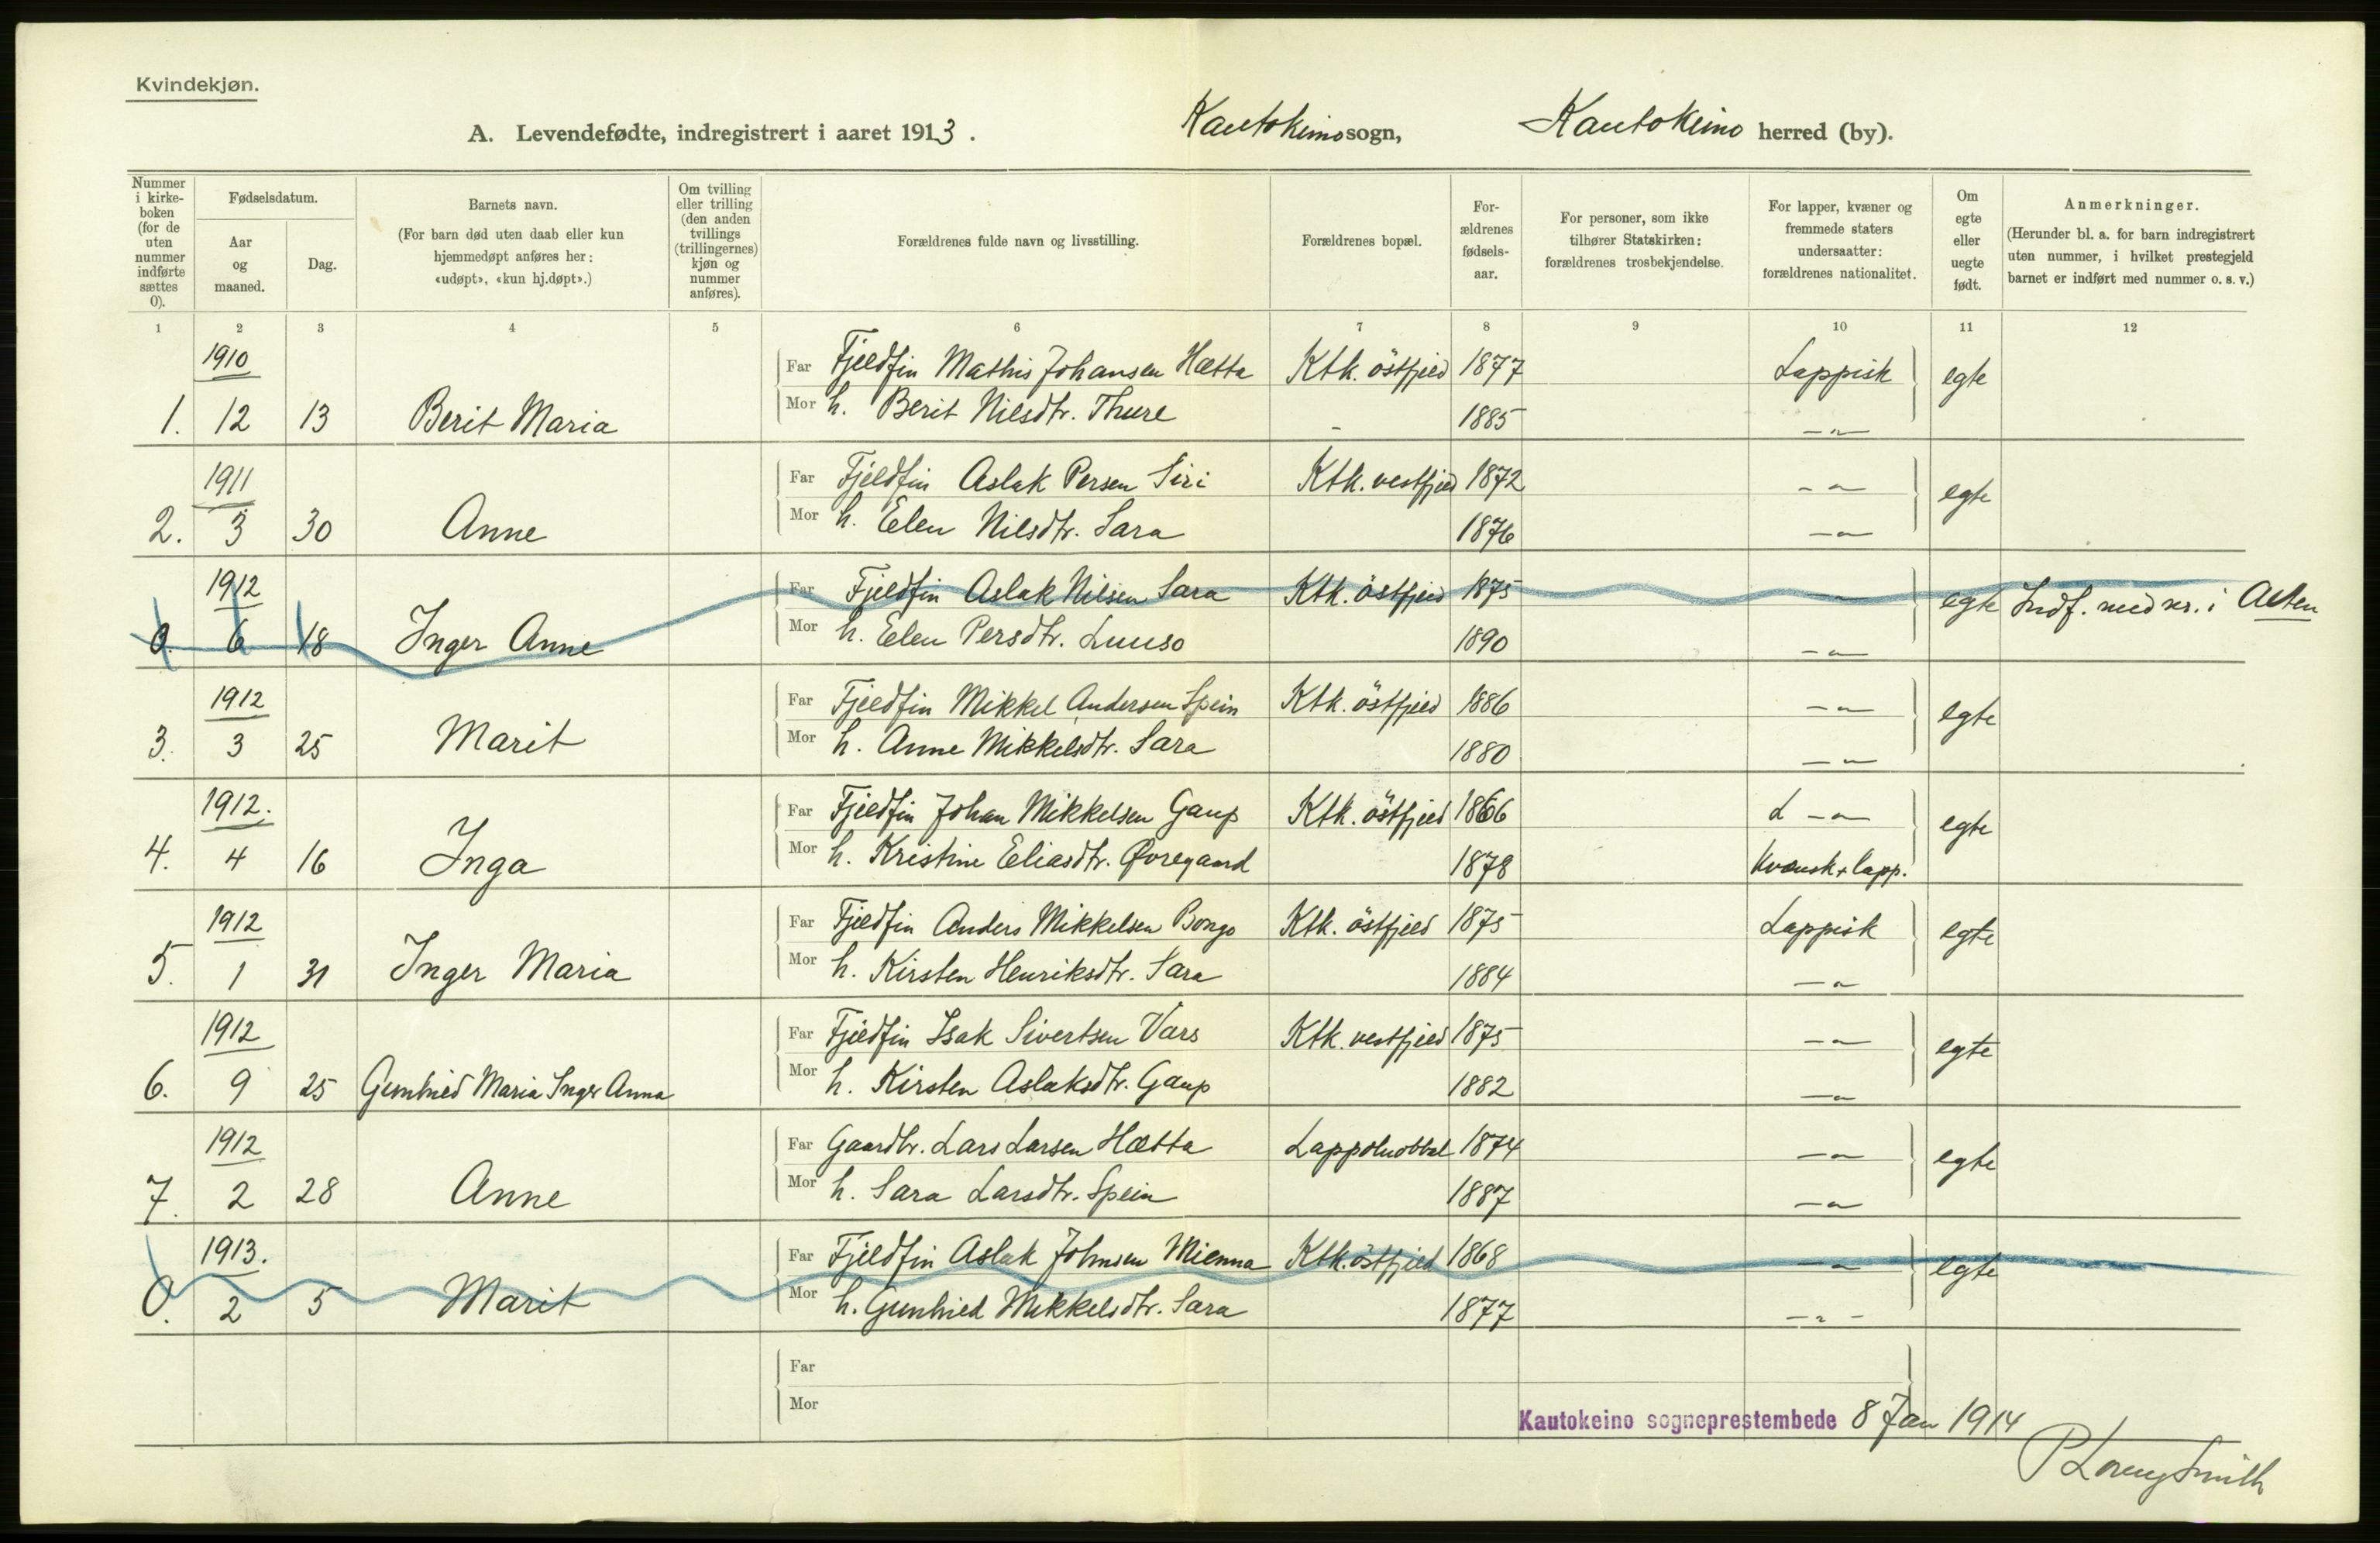 Kvindekjøn.
A. Levendefødte, indregistrert i aaret 1913. Kautokino sogn, Kautokeino herred (by).
Nummer i kirkeboken (for de uten nummer indførte sættes 0).
Fødselsdatum.
Aar og maaned.
Dag.
Barnets navn.
(For barn død uten daab eller kun hjemmedøpt anføres her: «udøpt», «kun hj.døpt».)
Om tvilling eller trilling (den anden tvillings (trillingernes) kjøn og nummer anføres).
Forældrenes fulde navn og livsstilling.
Forældrenes bopæl.
Forældrenes fødselsaar.
For personer, som ikke tilhører Statskirken: forældrenes trosbekjendelse.
For lapper, kvæner og fremmede staters undersaatter: forældrenes nationalitet.
Om egte eller uegte født.
Anmerkninger.
(Herunder bl. a. for barn indregistrert uten nummer, i hvilket prestegjeld barnet er indført med nummer o. s. v.)
1 2 3 4 5 6 7 8 9 10 11 12
1910 Far Fjeldfin Mathis Johansen Hætta Ktk. östfjeld 1877 Lappisk egte
1. 12 13 Berit Maria Mor h. Berit Nilsdtr. Thure - 1885 -"-
1911 Far Fjeldfin Aslak Persen Siri Ktk. vestfjeld 1872 -"- egte
2. 3 30 Anne Mor h. Elen Nilsdtr. Sara 1876 -"-
1912 Far Fjeldfin Aslak Nilsen Sara Ktk. östfjeld 1875 -"- egte Indf. med nr. i Alten
0. 6 18 Inger Anne Mor h. Elen Persdtr. Luuso 1890 -"-
1912 Far Fjeldfin Mikkel Andersen Spein Ktk. östfjeld 1886 -"- egte
3. 3 25 Marit Mor h. Anne Mikkelsdtr. Sara 1880 -"-
1912. Far Fjeldfin Johan Mikkelsen Gaup Ktk. östfjeld 1866 L -"- egte
4. 4 16 Inga Mor h. Kristine Eliasdtr. Øvregaard 1878 Kvænsk + lapp.
1912 Far Fjeldfin Anders Mikkelsen Bongo Ktk. östfjeld 1875 Lappisk egte
5. 1 31 Inger Maria Mor h. Kirsten Henriksdtr. Sara 1884 -"-
1912 Far Fjeldfin Isak Sivertsen Vars Ktk. vestfjeld 1875 -"- egte
6. 9 25 Gunhild Maria Inger Anna Mor h. Kirsten Aslaksdtr. Gaup 1882 -"-
1912 Far Gaardbr. Lars Larsen Hætta Lappoluobbal 1874 -"- egte
7. 2 28 Anne Mor h. Sara Larsdtr. Spein 1887 -"-
1913. Far Fjeldfin Aslak Johnsen Mienna Ktk. östfjeld 1868 -"- egte
0. 2 5 Marit Mor h. Gunhild Mikkelsdtr. Sara 1877 -"-
Far
Mor
Kautokeino sogneprestembede 8 Jan 1914
P Lorenz Smith